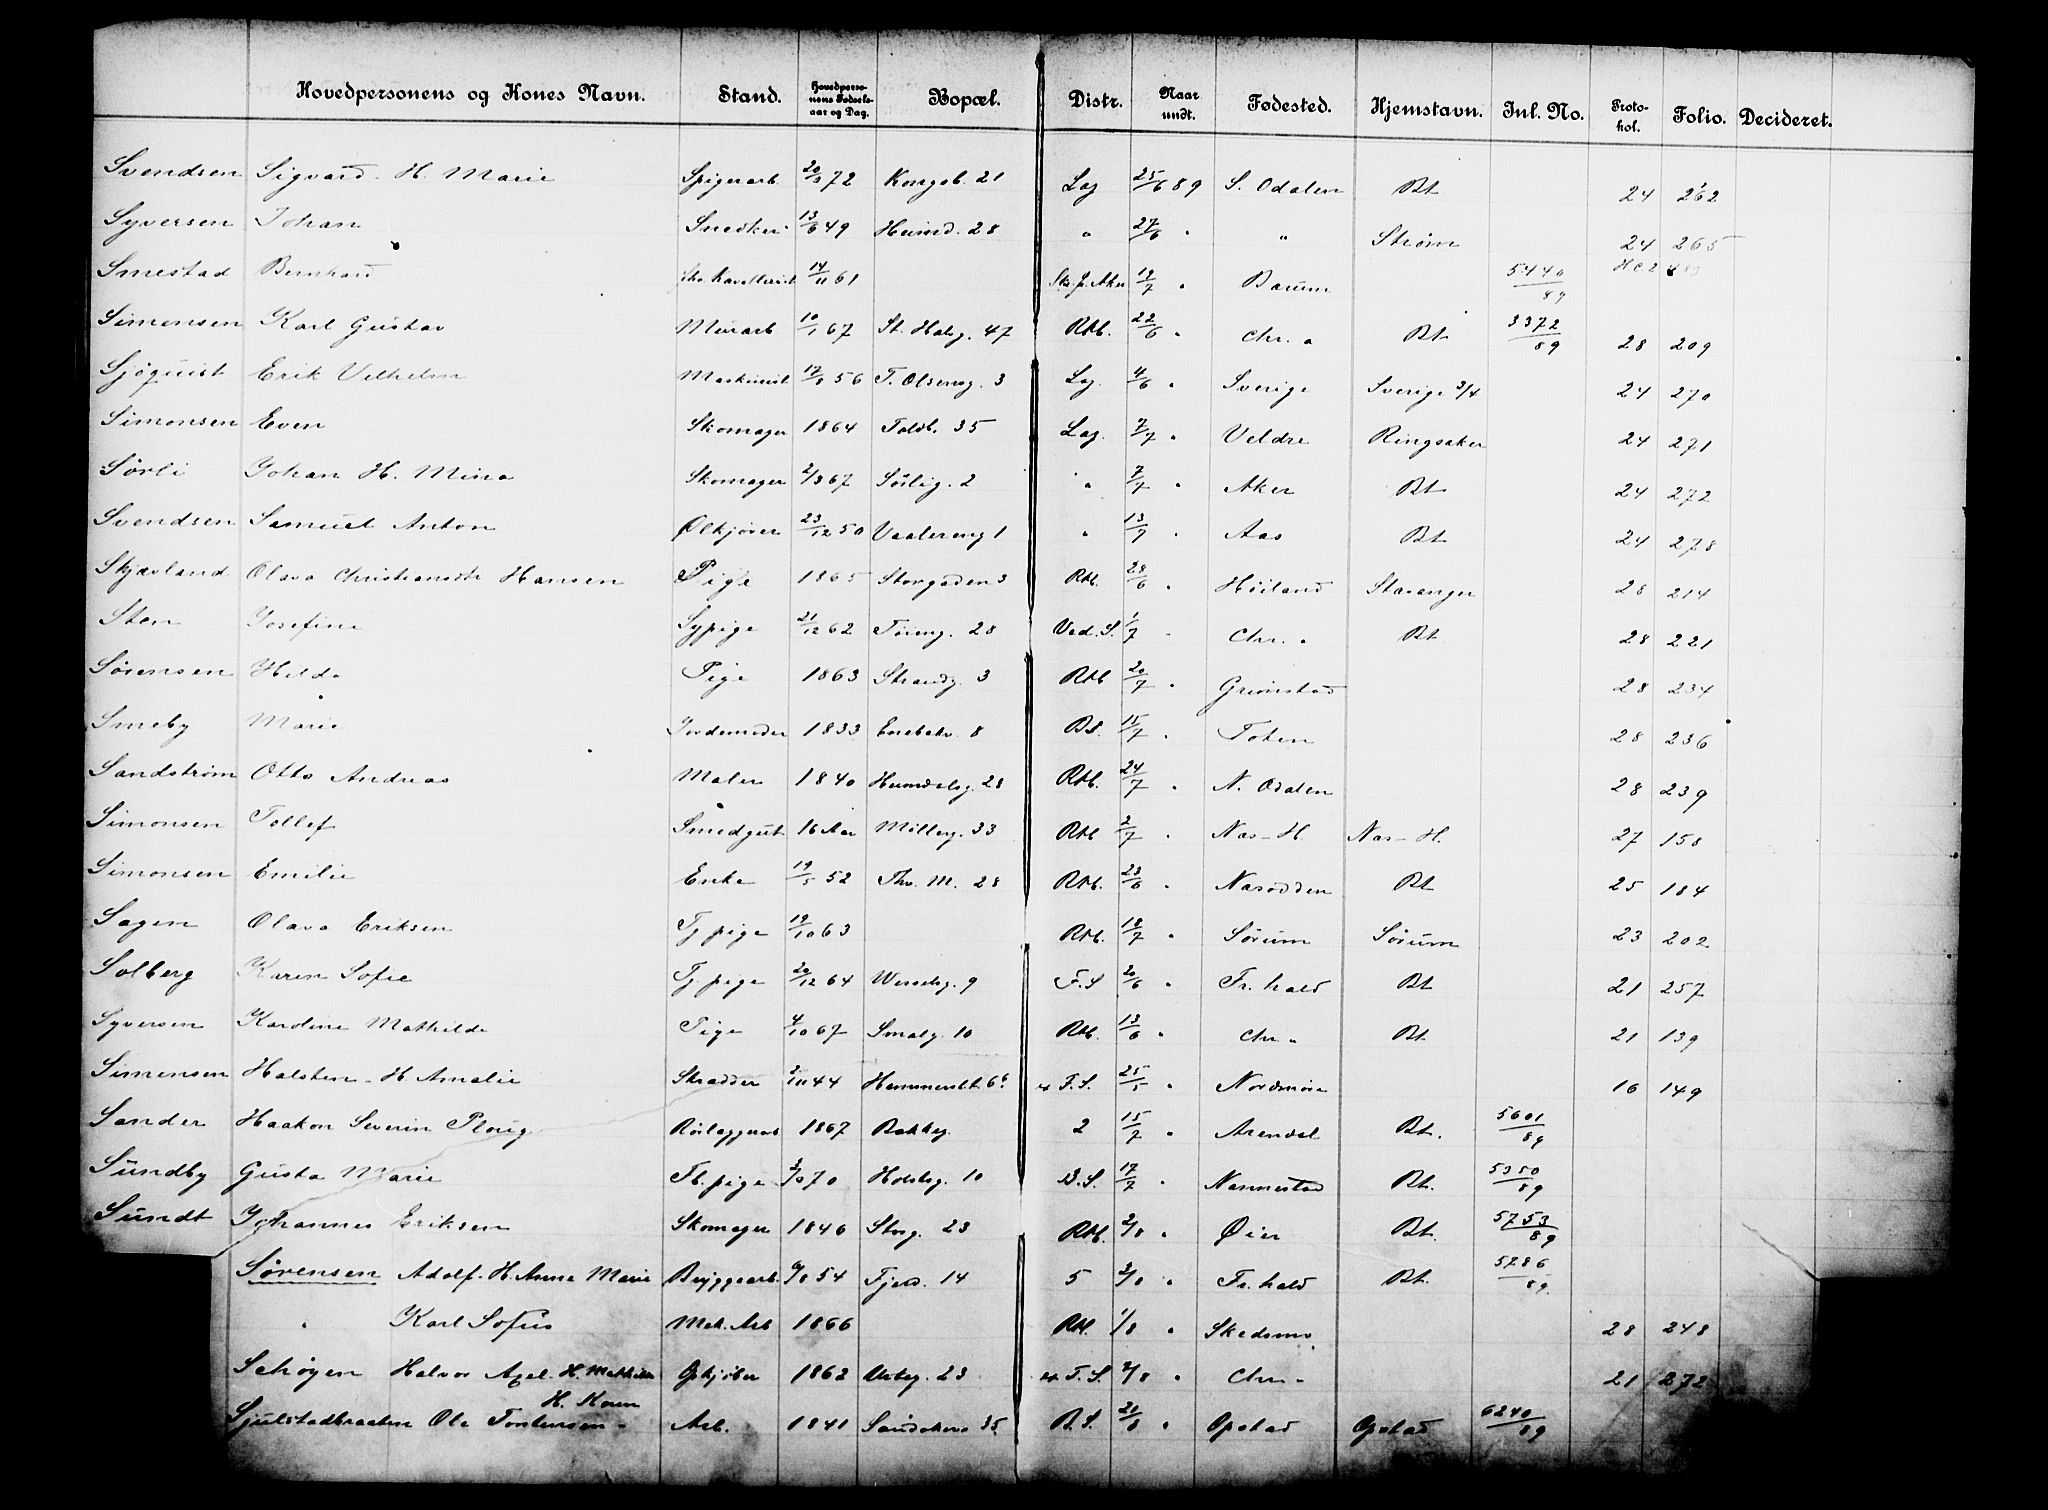 Hovedpersonens og Kones Navn. Stand. Hovedperso-nens Fødsels-aar og Dag. Bopæl. Distr. Naar undt. Fødested. Hjemstavn. Inl. No. Proto-kol. Folio. Decideret.
Svendsen Sigvard H. Marie Spigerarb. 72 Kongsb. 21 Lag 25/6 89 S. Odalen Bt 24 262
Syversen Johan Snedker 13/6 49 Heimd. 28 " 27/6 " " Strøm 24 265
Smestad Bernhard 14/11 61 19/7 " Bærum 5440/89
Simensen Karl Gustav Murarb 10/1 67 St. Halvg. 47 Rtb. 22/6 " Chr. a Bt 3372/89 28 209
Sjöquist Erik Vilhelm Maskinist 56 T. Olsensg. 3 Lag. 4/6 " Sverige Sverige 3/4 24 270
Simonsen Even Skomager 1864 Toldb. 35 Lag. 7/7 " Veldre Ringsaker 24 271
Sørli Johan H. Mina Skomager 2/3 67 Sörlig. 2 " 7/7 " Aker Bt 24 272
Svendsen Samuel Anton Ølkjører 23/12 50 Vaalereng 1 " 13/7 " Aas Bt 24 278
Skjævland Olava Christiansdtr Hansen Pige 1865 Storgaden 3 Rtb. 28/6 " Høiland Stavanger 28 214
Sten Josefine Sypige 21/12 62 Tøieng. 28 Ved. S. 1/7 " Chr. a Bt 28 221
Sørensen Hilda Pige 1863 Strandg. 3 Rtb 20/7 " Grimstad 28 234
Smeby Marie Jordemoder 1833 Enebakv. 8 BS. 15/7 " Toten 28 236
Sandstrøm Otto Andreas Maler 1840 Heimdalsg. 28 Rtb. 24/7 " N. Odalen 28 239
Simonsen Tollef Smedgut 16 Aar Møllerg. 33 Rtb 2/7 " Næs-H. Næs-H. 27 158
Simonsen Emilie Enke 19/5 52 Thv. M. 28 Rtb. 28/6 " Næsodden Bt 25 184
Sagen Olava Eriksen Tj. pige 19/10 63 Rtb. 18/7 " Sørum Sørum 23 202
Solberg Karen Sofie Tj. pige 20/12 64 Wesselsg. 9 F.S 20/6 " Fr. hald Bt 21 257
Syversen Karoline Mathilde Pige 4/10 67 Smalg. 10 Rtb. 13/6 " Chr. a Bt 21 139
Simensen Halsten H Amalie Skrædder 2/11 44 Hammersb. 6b T.S. 25/5 " Nordmøre 16 149
Sander Haakon Severin Ploug Rörlæggerarb 1867 Bakkeg. 2 15/7 " Arendal Bt. 5601/89
Sundby Gusta Marie Fb. pige 70 Holstsg. 10 B.S. 17/7 " Nannestad Bt. 5350/89
Sundt Johannes Eriksen Skomager 1846 Storg. 23 Rtb. 2/8 " Øier Bt. 5753/89
Sørensen Adolf H. Anna Marie Bryggearb. 54 Fjeld. 14 5 2/8 " Fr. hald Bt. 5786/89
" Karl Sofus Mek. Arb 1866 Rtb. 1/8 " Skedsmo 28 248
Schøyen Halvor Axel H. Mathilde 1862 Urteg. 23 T.S. 2/8 " Chr. a 21 272
Sjulstadbraaten Ole Torstensen H. Karen Arb. 1841 Sandakerv 35 B.S. 21/8 " Opstad Opstad 6240/89